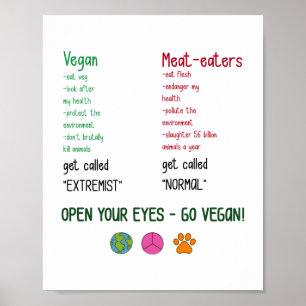 Vegan
-eat veg
-look after
my health
-protect the
environment
-don't brutally
kill animals
get called
"EXTREMIST"
Meat-eaters
-eat flesh
-endanger my
health
-pollute the
environment
-slaughter 56 billion
animals a year
get called
"NORMAL"
OPEN YOUR EYES - GO VEGAN!